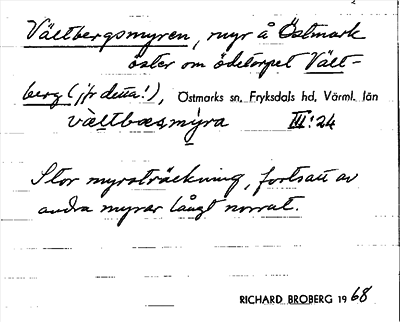 Vältbergsmyren, myr å Östmark
öster om ödetorpet Vält-
berg (jfr detta!), Östmarks sn, Fryksdals hd, Värml. län
vàltbæs,mỳra III:24
Stor myrsträckning, fortsatt av
andra myrar långt norrut.
RICHARD BROBERG 1968